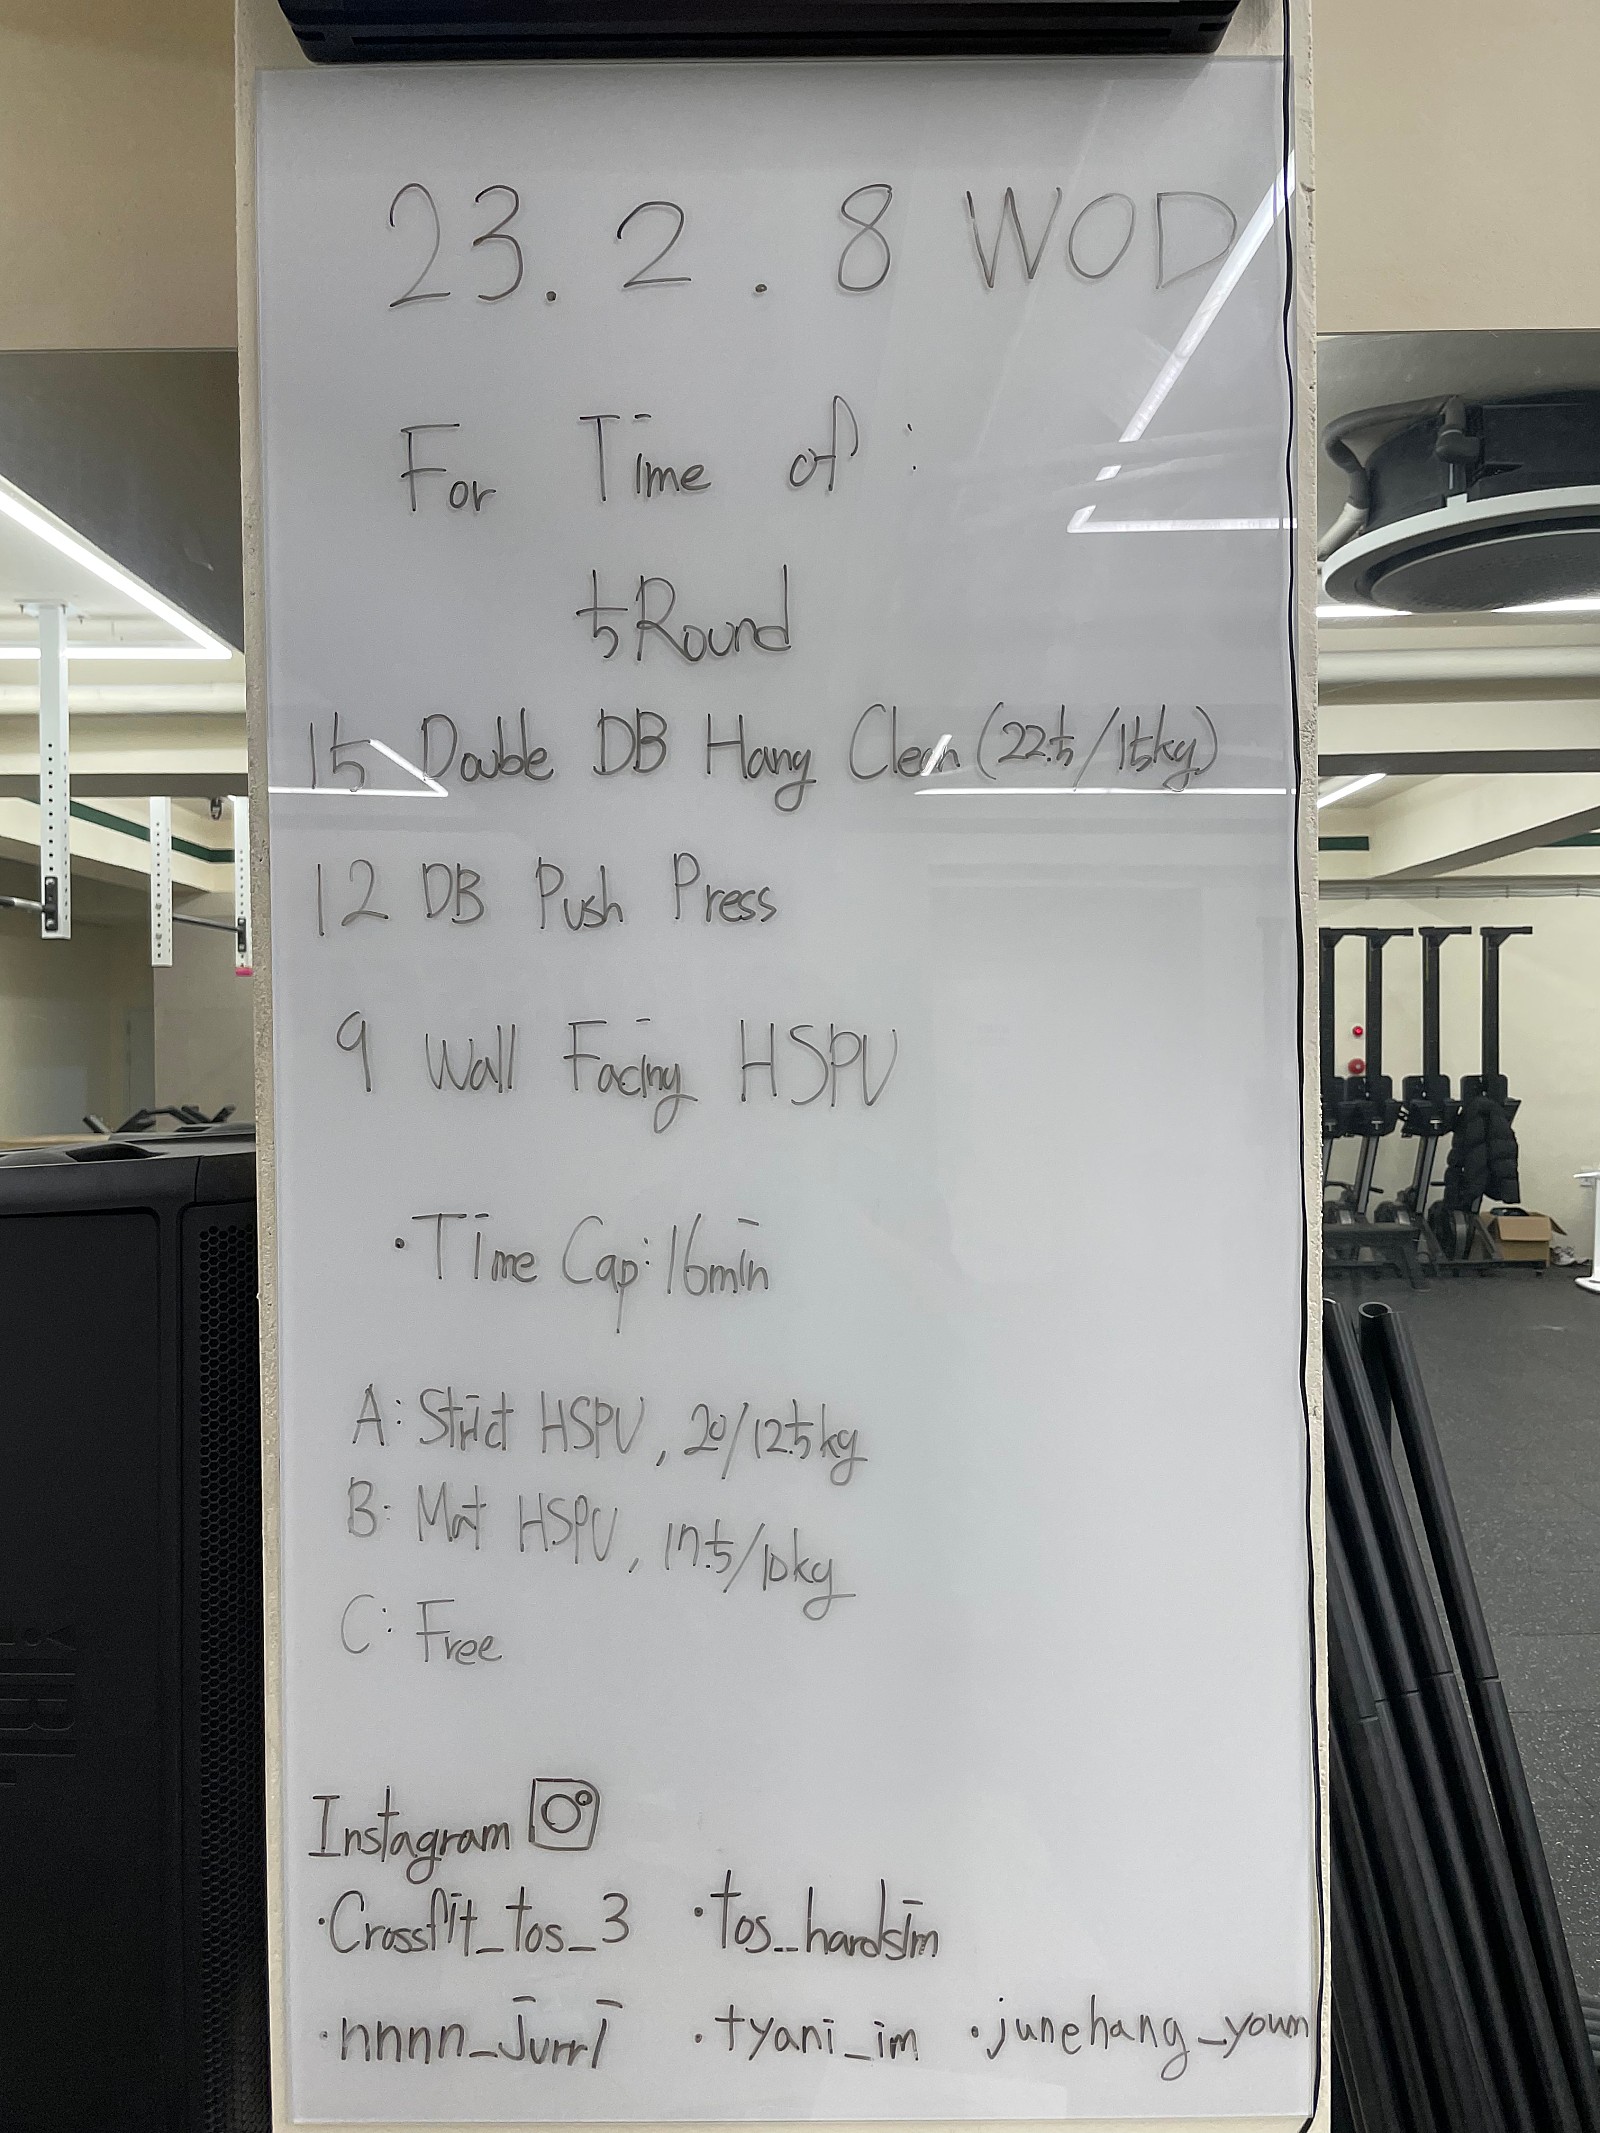 23. 2. 8 WOD
For Time of :
5 Round
15 Double DB Hang Clean (22.5/15kg)
12 DB Push Press
9 Wall Facing HSPU
· Time Cap: 16min
A: Strict HSPU, 20/12.5kg
B: Mat HSPU, 17.5/10kg
C: Free
Instagram
· Crossfit_tos_3 · tos_hardsim
· nnnn_jurri · tyani_im · junehang_youm